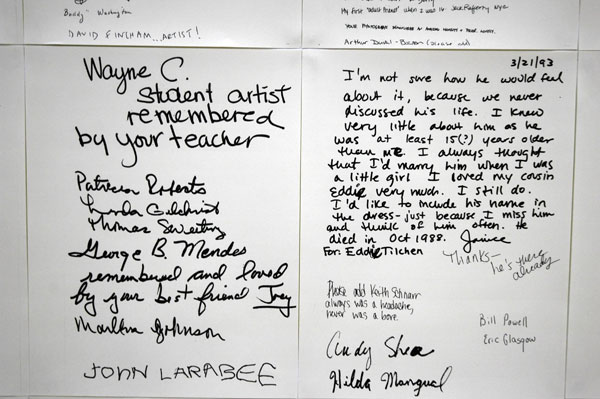 "Buddy" Washington
DAVID FINCHAM...ARTIST!
Wayne C.
student artist
remembered
by your teacher
Patricia Roberts
Linda Gilchrist
Thomas Sweeting
George B. Mendes
remembered and loved
by your best friend Joey
Martha Johnson
JOHN LARABEE
Arthur
3/21/93
I'm not sure how he would feel
about it, because we never
discussed his life. I knew
very little about him as he
was at least 15(?) years older
than me. I always thought
that I'd marry him when I was
a little girl I loved my cousin
Eddie very much. I still do.
I'd like to include his name in
the dress - just because I miss him
and think of him often. He
died in Oct 1988. Janice
For: Eddie Tilchen
Thanks-
he's there
already
Please add Keith Schnarr
always was a headache,
never was a bore.
Bill Powell
Eric Glasgow
Andy Shea
Hilda Manguel